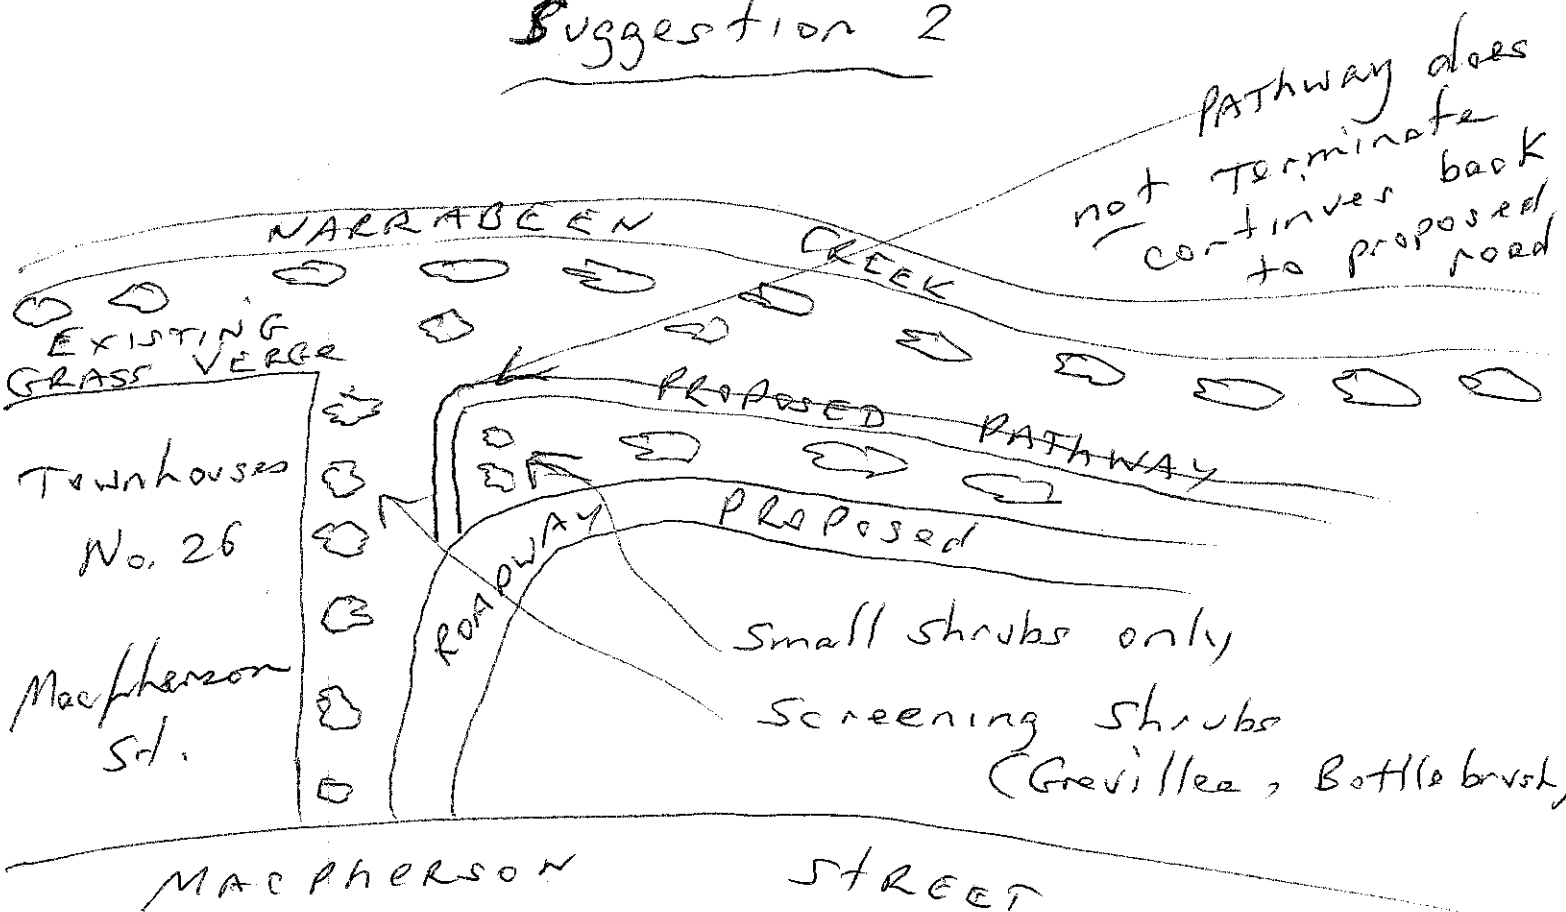 Suggestion 2
PAThway does
not Terminate
continues back
to proposed
road
NARRABEEN CREEK
EXISTING
GRASS VERGE
PROPOSED PATHWAY
Townhouses
No. 26
Macpherson
St.
ROADWAY PROPOSED
Small shrubs only
Screening shrubs
(Grevillea, Bottlebrush)
MACPHERSON STREET